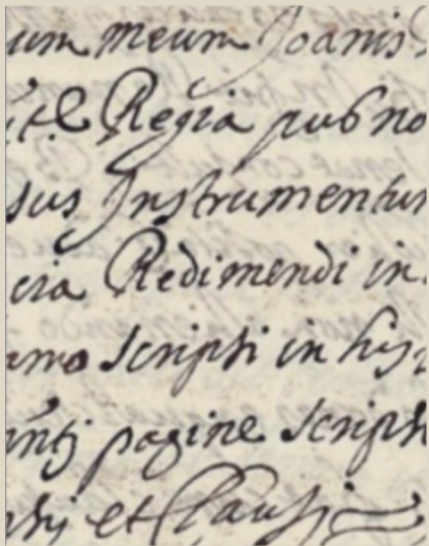 um meum Joanis
Regia pub no
sus Instrumentum
cia Redimendi in
scripsi in his
pagine scripsi
et Clausi